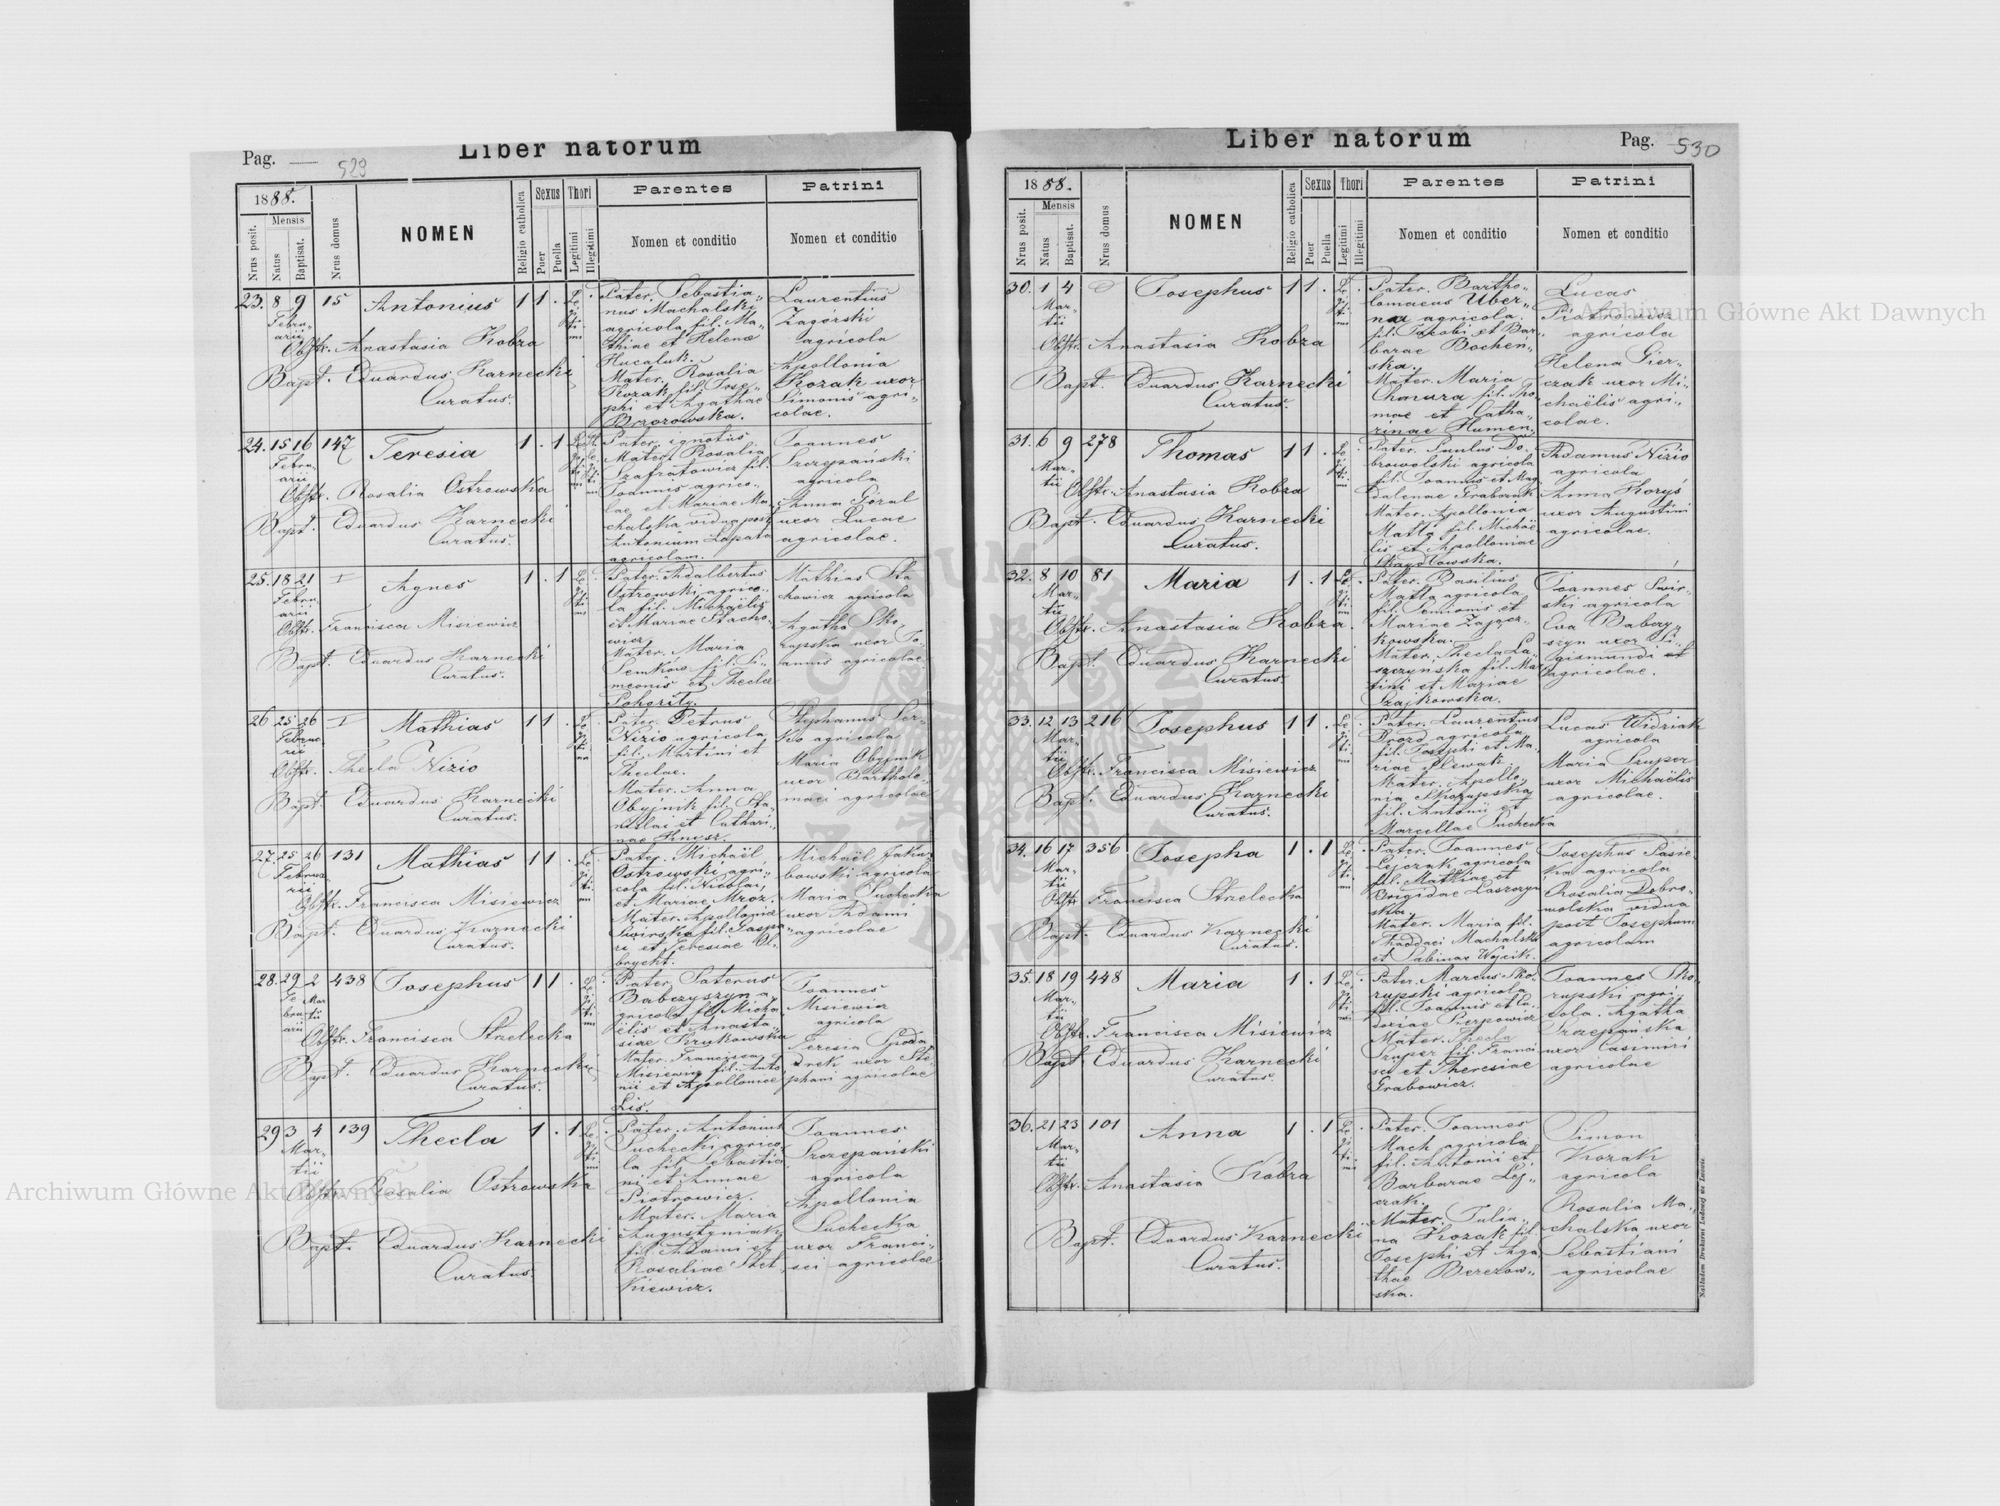 Pag. — 529
Liber natorum
1888.
Mensis
Nrus posit.
Natus
Baptisat.
Nrus domus
NOMEN
Religio catholica
Sexus
Puer
Puella
Thori
Legitimi
Illegitimi
Parentes
Nomen et conditio
Patrini
Nomen et conditio
23. 8 9 15 Antonius 1 1 .
Febru-
arii
Obstr. Anastasia Kobza
Bapt. Eduardus Karnecki
Curatus.
Legitimi
Pater. Sebastia-
nus Machalski
agricola fil. Ma-
thiae et Helenae
Hucaluk.
Mater. Rosalia
Kozak fil. Jose-
phi et Agathae
Brzozowska.
Laurentius
Zagórski
agricola
Apollonia
Kozak uxor
Simonis agri-
colae.
24. 15 16 147 Teresia 1 . 1
Febru-
arii
Obstr. Rosalia Ostrowska
Bapt. Eduardus Karnecki
Curatus.
Pater ignotus
Mater Rosalia
Szafratowicz fil.
Joannis agrico-
lae et Mariae Ma-
chalska vidua post
Antonium Łapata
agricolam.
Joannes
Szczepański
agricola
Anna Góral
uxor Lucae
agricolae.
25. 18 21 I Agnes 1 . 1
Febru-
arii
Obstr. Francisca Misiewicz
Bapt. Eduardus Karnecki
Curatus.
Legitimi
Pater. Adalbertus
Ostrowski agrico-
la fil. Michaëlis
et Mariae Stacho-
wicz
Mater. Maria
Semkow fil. Si-
meonis et Theclae
Pohority.
Mathias Sta
chowicz agricola
Agatha Sko-
rupska uxor Jo
annis agricolae
26 25 26 I Mathias 1 1 .
Februa-
rii
Obstr. Thecla Nizio
Bapt. Eduardus Karnecki
Curatus.
Pater. Petrus
Nizio agricola
fil. Martini et
Theclae.
Mater. Anna
Obyjnik fil. Sta-
nislai et Cathari-
nae Knysz.
Stephanus Ser-
ko agricola
Maria Obyjnik
uxor Bartholo-
maei agricolae
27. 25 26 131 Mathias 1 1 .
Februa-
rii
Obstr. Francisca Misiewicz
Bapt. Eduardus Karnecki
Curatus.
Pater. Michaël
Ostrowski agri-
cola fil. Nicolai,
et Mariae Mroz.
Mater. Apollonia
Świrska fil. Gaspa-
ri et Teresiae Ol-
brycht.
Michaël Jaku-
bowski agricola
Maria Suchecka
uxor Adami
agricolae
28. 29 2 438 Josephus 1 1 .
Fe Mar
bru- tii
arii
Obstr. Francisca Strelecka
Bapt. Eduardus Karnecki
Curatus.
Pater. Paterus
Babczyszyn a-
gricola fil. Micha-
ëlis et Anasta-
siae Krukowska
Mater. Francisca
Misiewicz fil. Anto-
nii et Apolloniae
Lis.
Joannes
Misiewicz
agricola
Teresia
uxor Ste-
phani agricolae
29 3 4 139 Thecla 1 . 1
Mar-
tii
Obstr. Rosalia Ostrowska
Bapt. Eduardus Karnecki
Curatus.
Pater. Antonius
Suchecki agrico-
la fil. Sebastia-
ni et Annae
Piotrowicz.
Mater. Maria
Augustyniak
fil. Adami et
Rosaliae Stet-
kiewicz.
Joannes
Szczepański
agricola
Apollonia
Suchecka
uxor Franci-
sci agricolae
Liber natorum
Pag. 530
1888.
Mensis
Nrus posit.
Natus
Baptisat.
Nrus domus
NOMEN
Religio catholica
Sexus
Puer
Puella
Thori
Legitimi
Illegitimi
Parentes
Nomen et conditio
Patrini
Nomen et conditio
30. 1 4 Josephus 1 1 .
Mar-
tii
Obstr. Anastasia Kobza
Bapt. Eduardus Karnecki
Curatus.
Pater. Bartho-
lomaeus Uber-
na agricola
fil. Jacobi et Bar-
barae Bocheń-
ska.
Mater. Maria
Chmura fil. Tho-
mae et Catha-
rinae Humen-
Lucas
Piotrowicz
agricola
Helena Gier-
czak uxor Mi-
chaëlis agri-
colae.
31. 6 9 278 Thomas 1 1 .
Mar-
tii
Obstr. Anastasia Kobza
Bapt. Eduardus Karnecki
Curatus.
Pater. Paulus Do-
browolski agricola
fil. Joannis et Mag-
dalenae Graboruk
Mater. Apollonia
Matla fil. Michaë-
lis et Apolloniae
Skrzydłowska.
Adamus Nizio
agricola
Anna Koryś
uxor Augustini
agricolae.
32. 8 10 81 Maria 1 . 1
Mar-
tii
Obstr. Anastasia Kobza.
Bapt. Eduardus Karnecki
Curatus.
Pater. Basilius
Matla agricola
fil. Semionis et
Mariae Zającz-
kowska.
Mater. Thecla La-
szczyńska fil. Mar
tini et Mariae
Szajkowska.
Joannes Świr-
ski agricola
Eva Babczy-
szyn uxor Si-
gismundi
agricolae.
33. 12 13 216 Josephus 1 1 .
Mar-
tii
Obstr. Francisca Misiewicz
Bapt. Eduardus Karnecki
Curatus.
Pater. Laurentius
Drozd agricola
fil. Josephi et Ma-
riae Plewak
Mater. Apollo-
nia Skorupska
fil. Antonii et
Marcellae Suchecka
Lucas Widziak
agricola
Maria Szuper
uxor Michaëlis
agricolae.
34. 16 17 356 Josepha 1 . 1
Mar-
tii
Obstr. Francisca Strelecka
Bapt. Eduardus Karnecki
Curatus.
Pater. Joannes
Lejczak agricola
fil. Mathiae et
Brigidae Laszczyń
ska.
Mater. Maria fil.
Thaddaei Machalski
et Sabinae Wojcik.
Josephus Pasie-
ka agricola
Rosalia Dobro-
wolska vidua
post Josephum
agricolam
35. 18 19 448 Maria 1 . 1
Mar-
tii
Obstr. Francisca Misiewicz
Bapt. Eduardus Karnecki
Curatus.
Pater. Marcus Sko-
rupski agricola
fil. Joannis et Eu-
doxiae Pierpowicz
Mater. Thecla
Szuper fil. Franci
sci et Theresiae
Grabowicz.
Joannes Sko-
rupski agri-
cola. Agatha
Szczepańska
uxor Casimiri
agricolae
36. 21 23 101 Anna 1 . 1
Mar-
tii
Obstr. Anastasia Kobza
Bapt. Eduardus Karnecki
Curatus.
Pater. Joannes
Mach agricola
fil. Antonii et
Barbarae Lej-
czak.
Mater. Julia-
na Kozak fil.
Josephi et Aga
thae Berezow-
ska.
Simon
Kozak
agricola
Rosalia Ma-
chalska uxor
Sebastiani
agricolae
Nakładem Drukarni Ludowej we Lwowie.
Archiwum Główne Akt Dawnych
Archiwum Główne Akt Dawnych